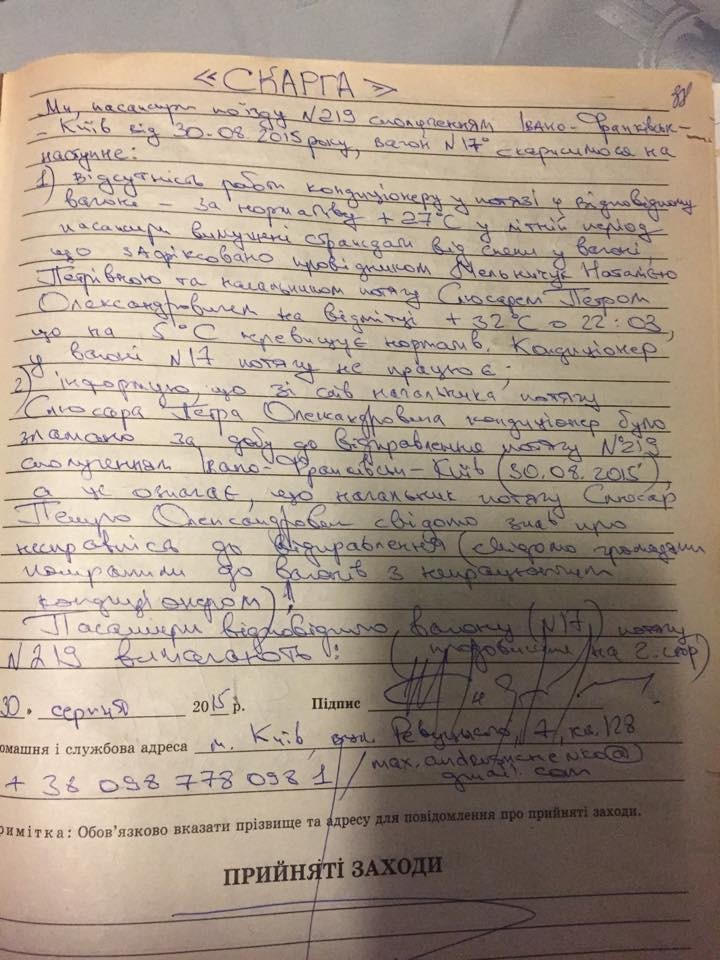 «СКАРГА»
Ми, пасажири поїзду №219 сполученням Івано-Франківськ-
- Київ від 30.08.2015 року, вагон №17 скаржимося на
наступне:
1) Відсутність роботи кондиціонеру у потязі у відповідному
вагоні – за нормативу +27°C у літній період
пасажири вимушені страждати від спеки у вагоні,
що зафіксовано провідником Мельничук Наталією
Петрівною та начальником потягу Слюсарем Петром
Олександровичем на відмітці +32°C о 22:03,
що на 5°C перевищує норматив. Кондиціонер
у вагоні №17 потягу не працює;
2) інформую, що зі слів начальника потягу
Слюсара Петра Олександровича кондиціонер було
зламано за добу до відправлення потягу №219
сполученням Івано-Франківськ-Київ (30.08.2015),
а це означає, що начальник потягу Слюсар
Петро Олександрович свідомо знав про
несправність до відправлення (свідомо громадяни
потрапили до вагонів з непрацюючим
кондиціонером)!
Пасажири відповідного вагону (№17) потягу
№219 вимагають: (продовження на 2 стор)
30. серпня 2015 р. Підпис
омашня і службова адреса м. Київ, вул. Ревуцького, 7, кв. 128
+38 098 778 098 1 / max.andrusychenko@
gmail.com
римітка: Обов'язково вказати прізвище та адресу для повідомлення про прийняті заходи.
ПРИЙНЯТІ ЗАХОДИ